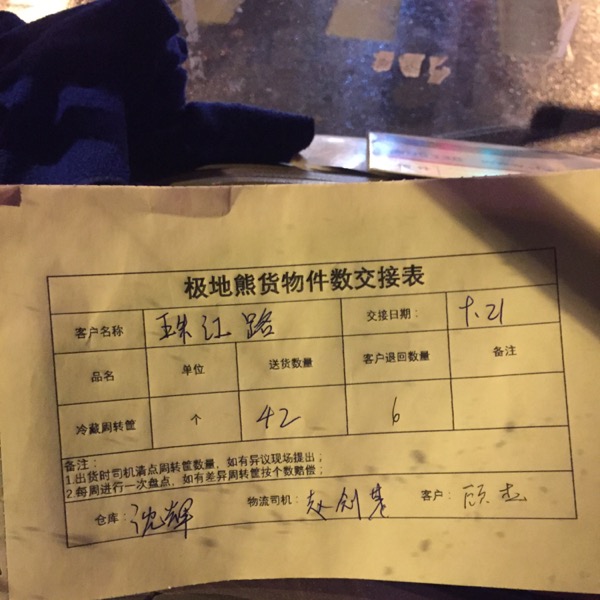 极地熊货物件数交接表
客户名称 珠江路 交接日期： 9.21
品名 单位 送货数量 客户退回数量 备注
冷藏周转筐 个 42 6
备注：
1.出货时司机清点周转筐数量，如有异议现场提出；
2.每周进行一次盘点，如有差异周转筐按个数赔偿；
仓库： 沈辉 物流司机： 赵创基 客户： 顾杰